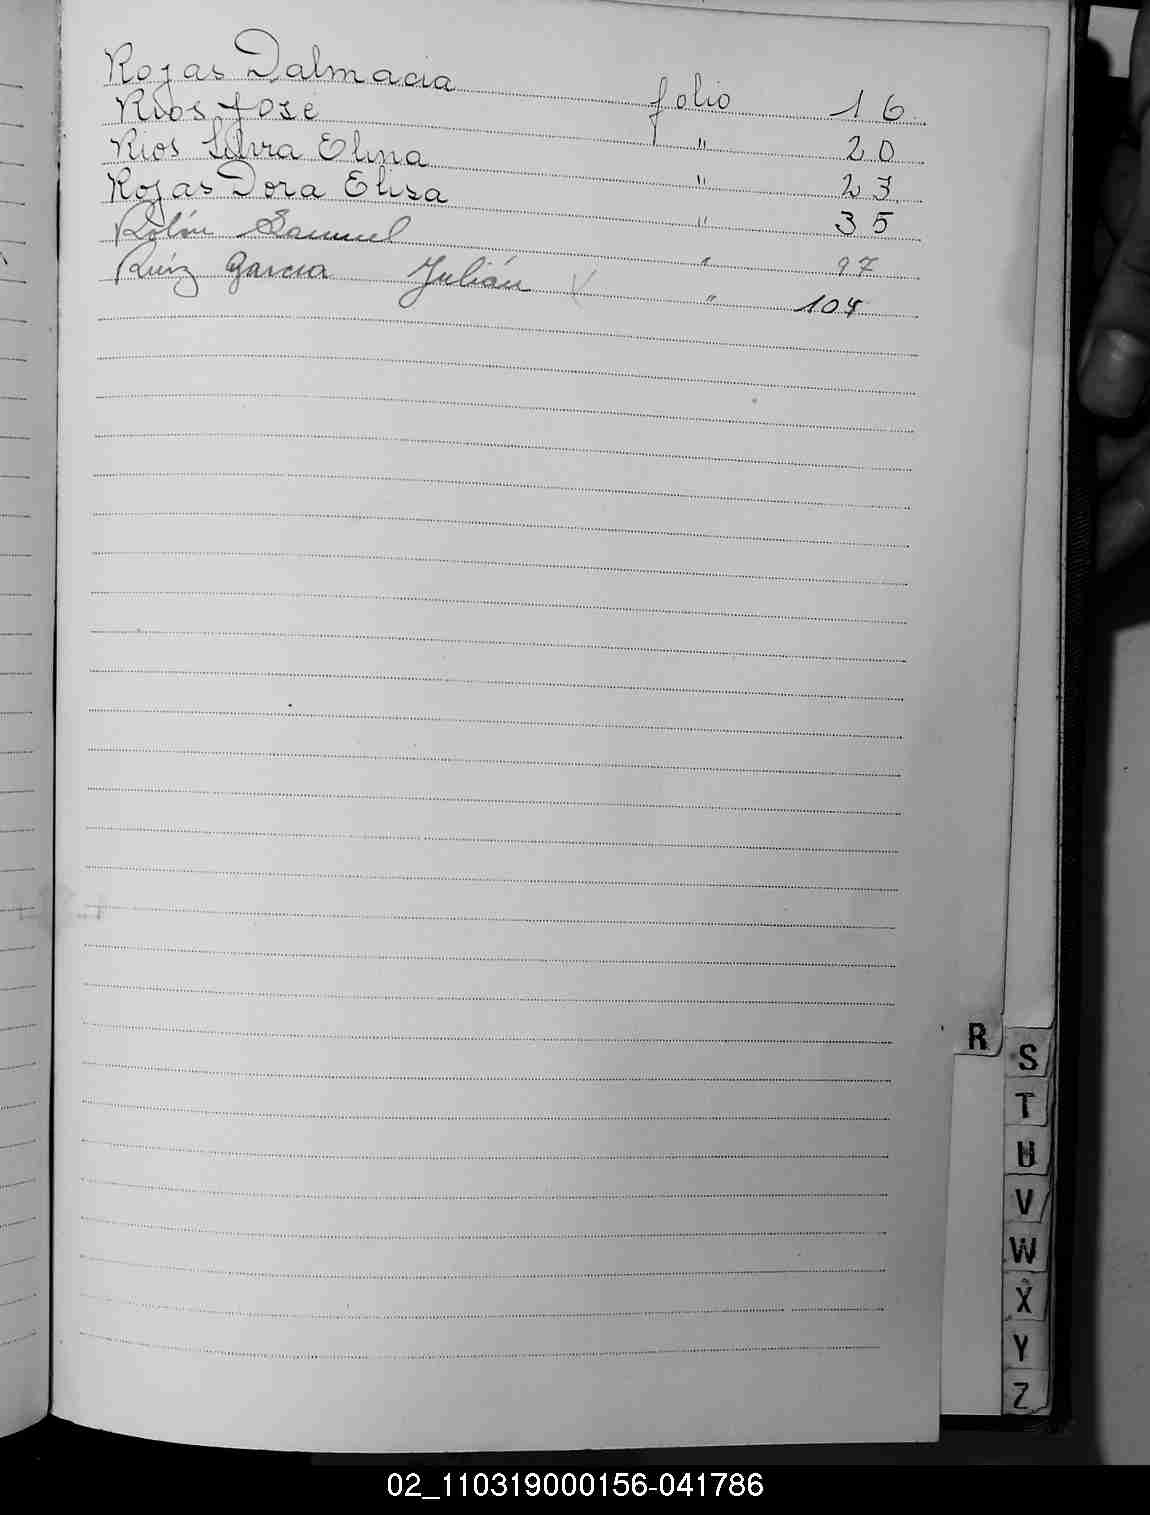 Rojas Dalmacia folio 16
Rios José " 20
Rios Silvia Elina " 23
Rojas Dora Elisa " 35
Rolón Samuel " 97
Ruiz Garcia Julián " 104
R
S
T
U
V
W
X
Y
Z
02_110319000156-041786